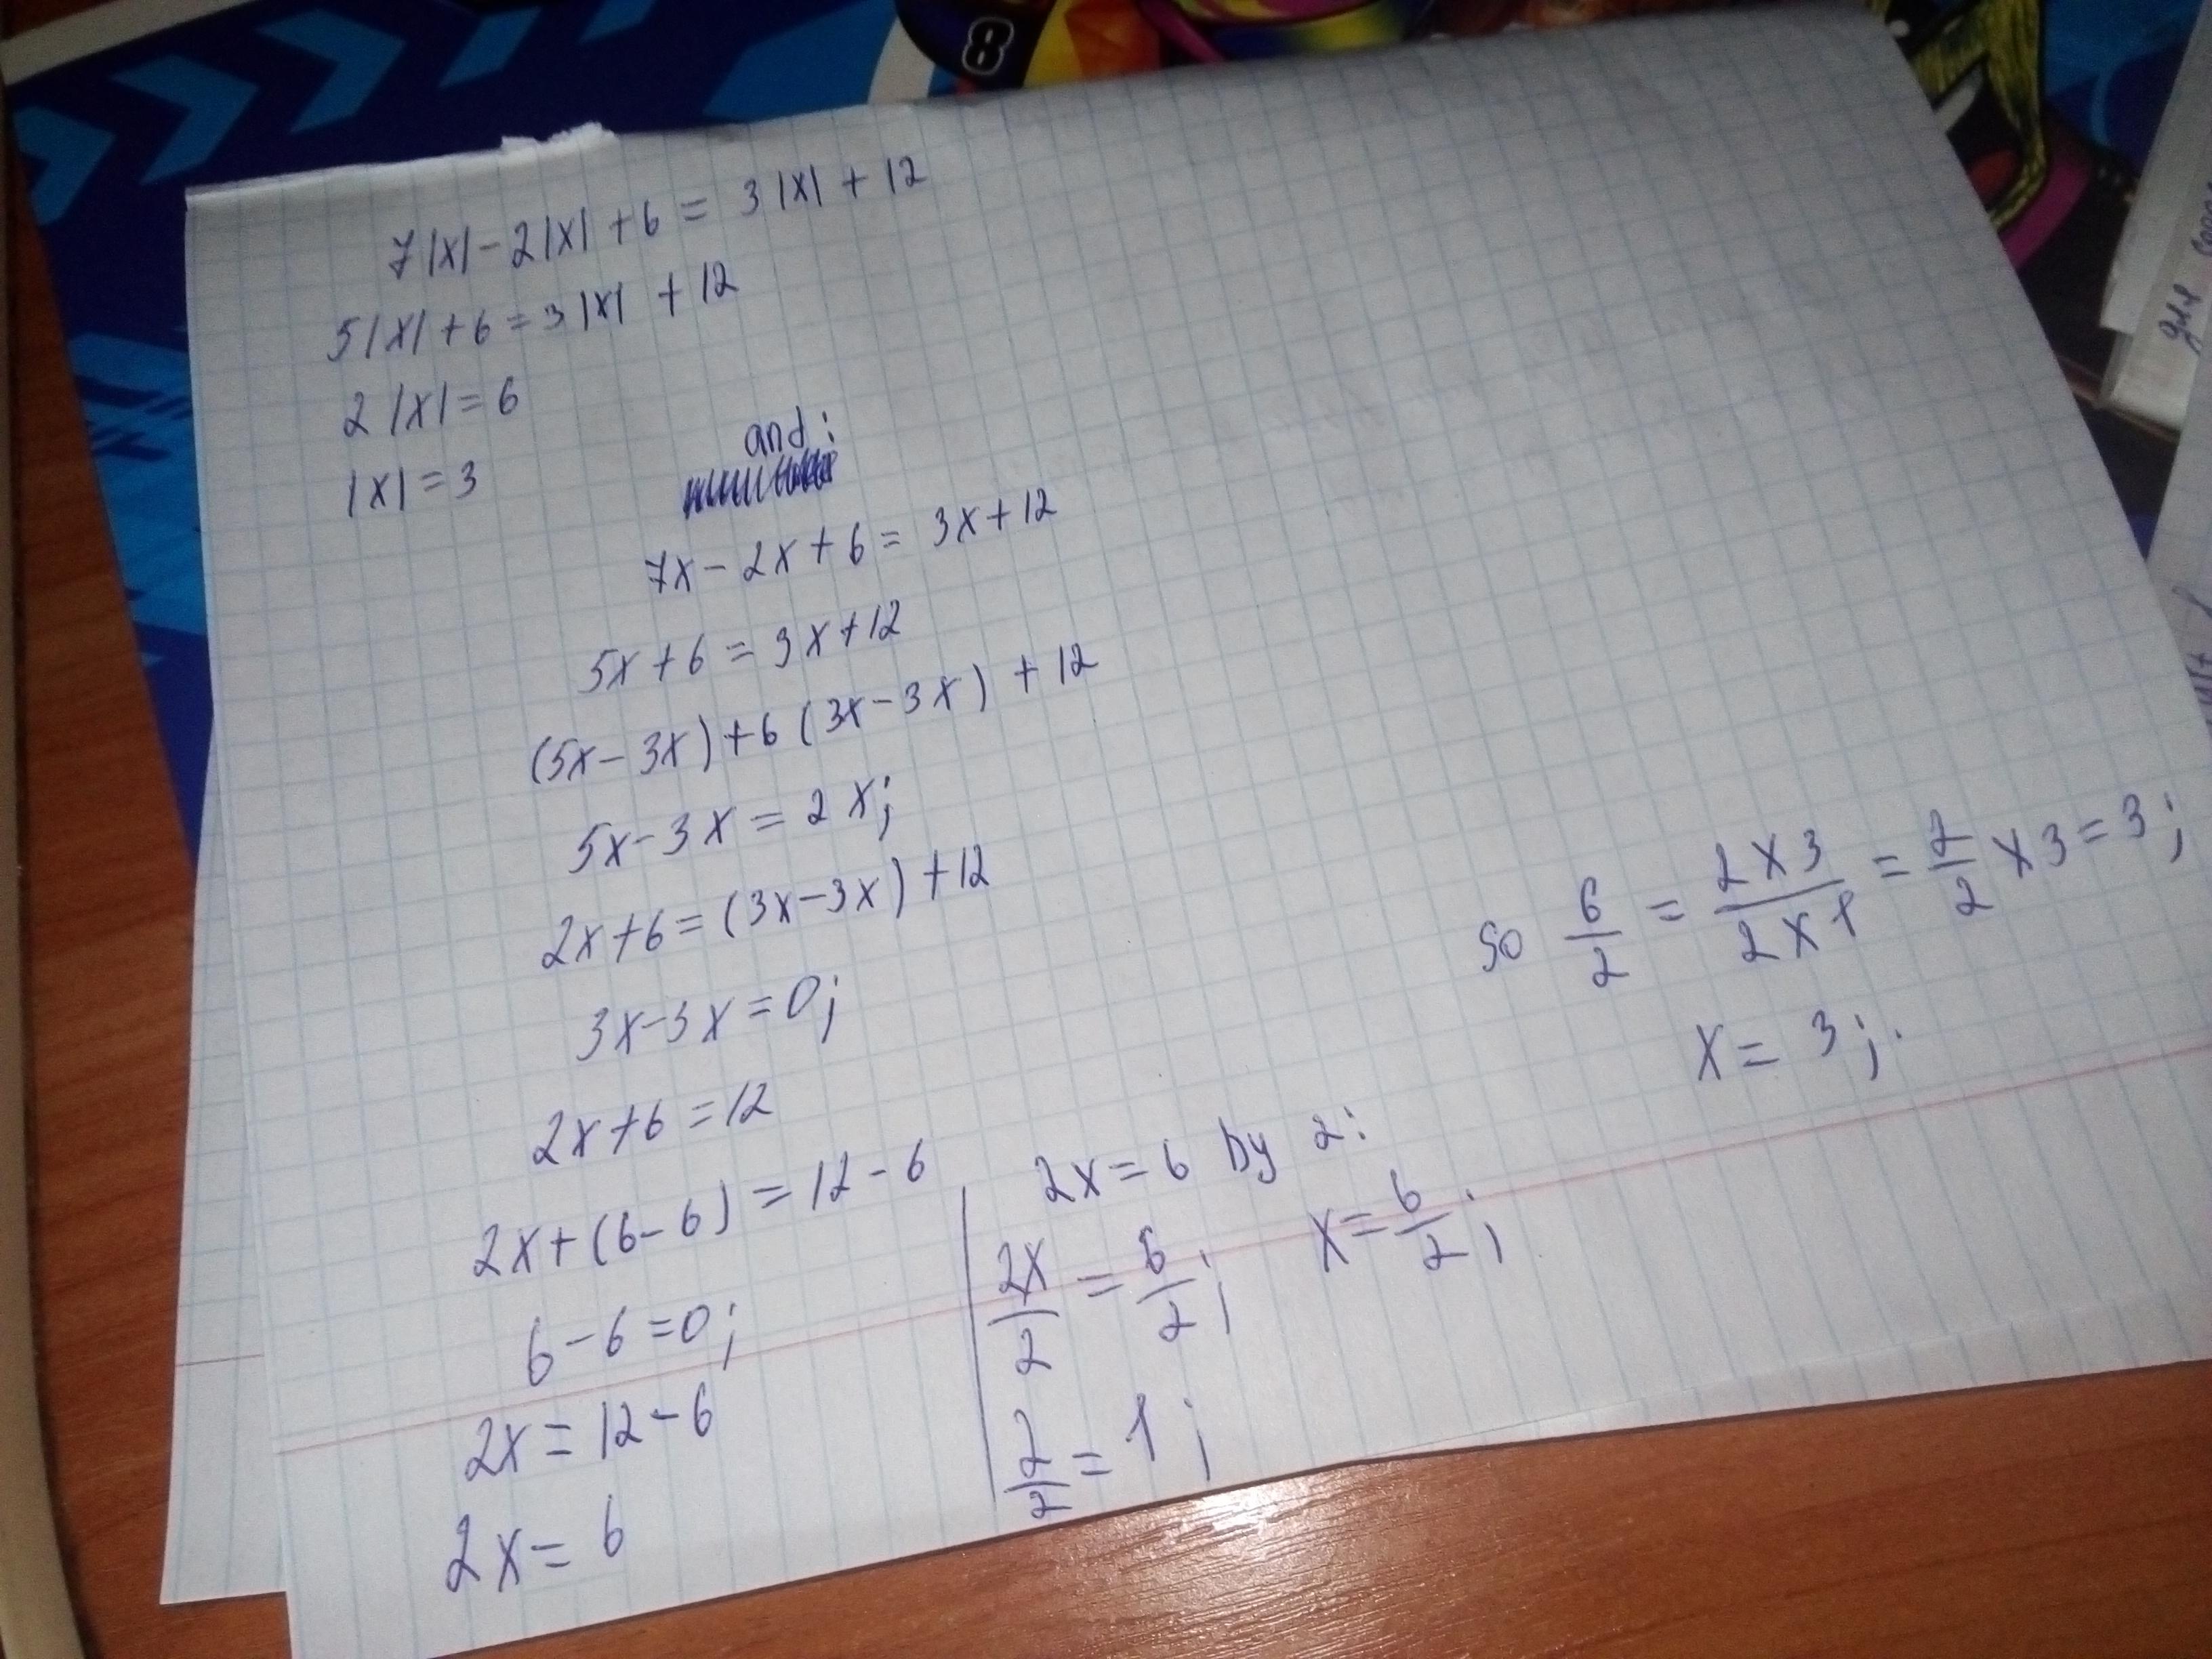 8
7|x|-2|x|+6=3|x|+12
5|x|+6=3|x|+12
2|x|=6
|x|=3
and:
7x-2x+6=3x+12
5x+6=3x+12
(5x-3x)+6(3x-3x)+12
5x-3x=2x;
2x+6=(3x-3x)+12
3x-3x=0;
2x+6=12
2x+(6-6)=12-6
6-6=0;
2x=12-6
2x=6
2x=6 by 2:
2x/2=6/2; x=6/2;
2/2=1;
so 6/2=2x3/2x1=2/2x3=3;
x=3;.
для